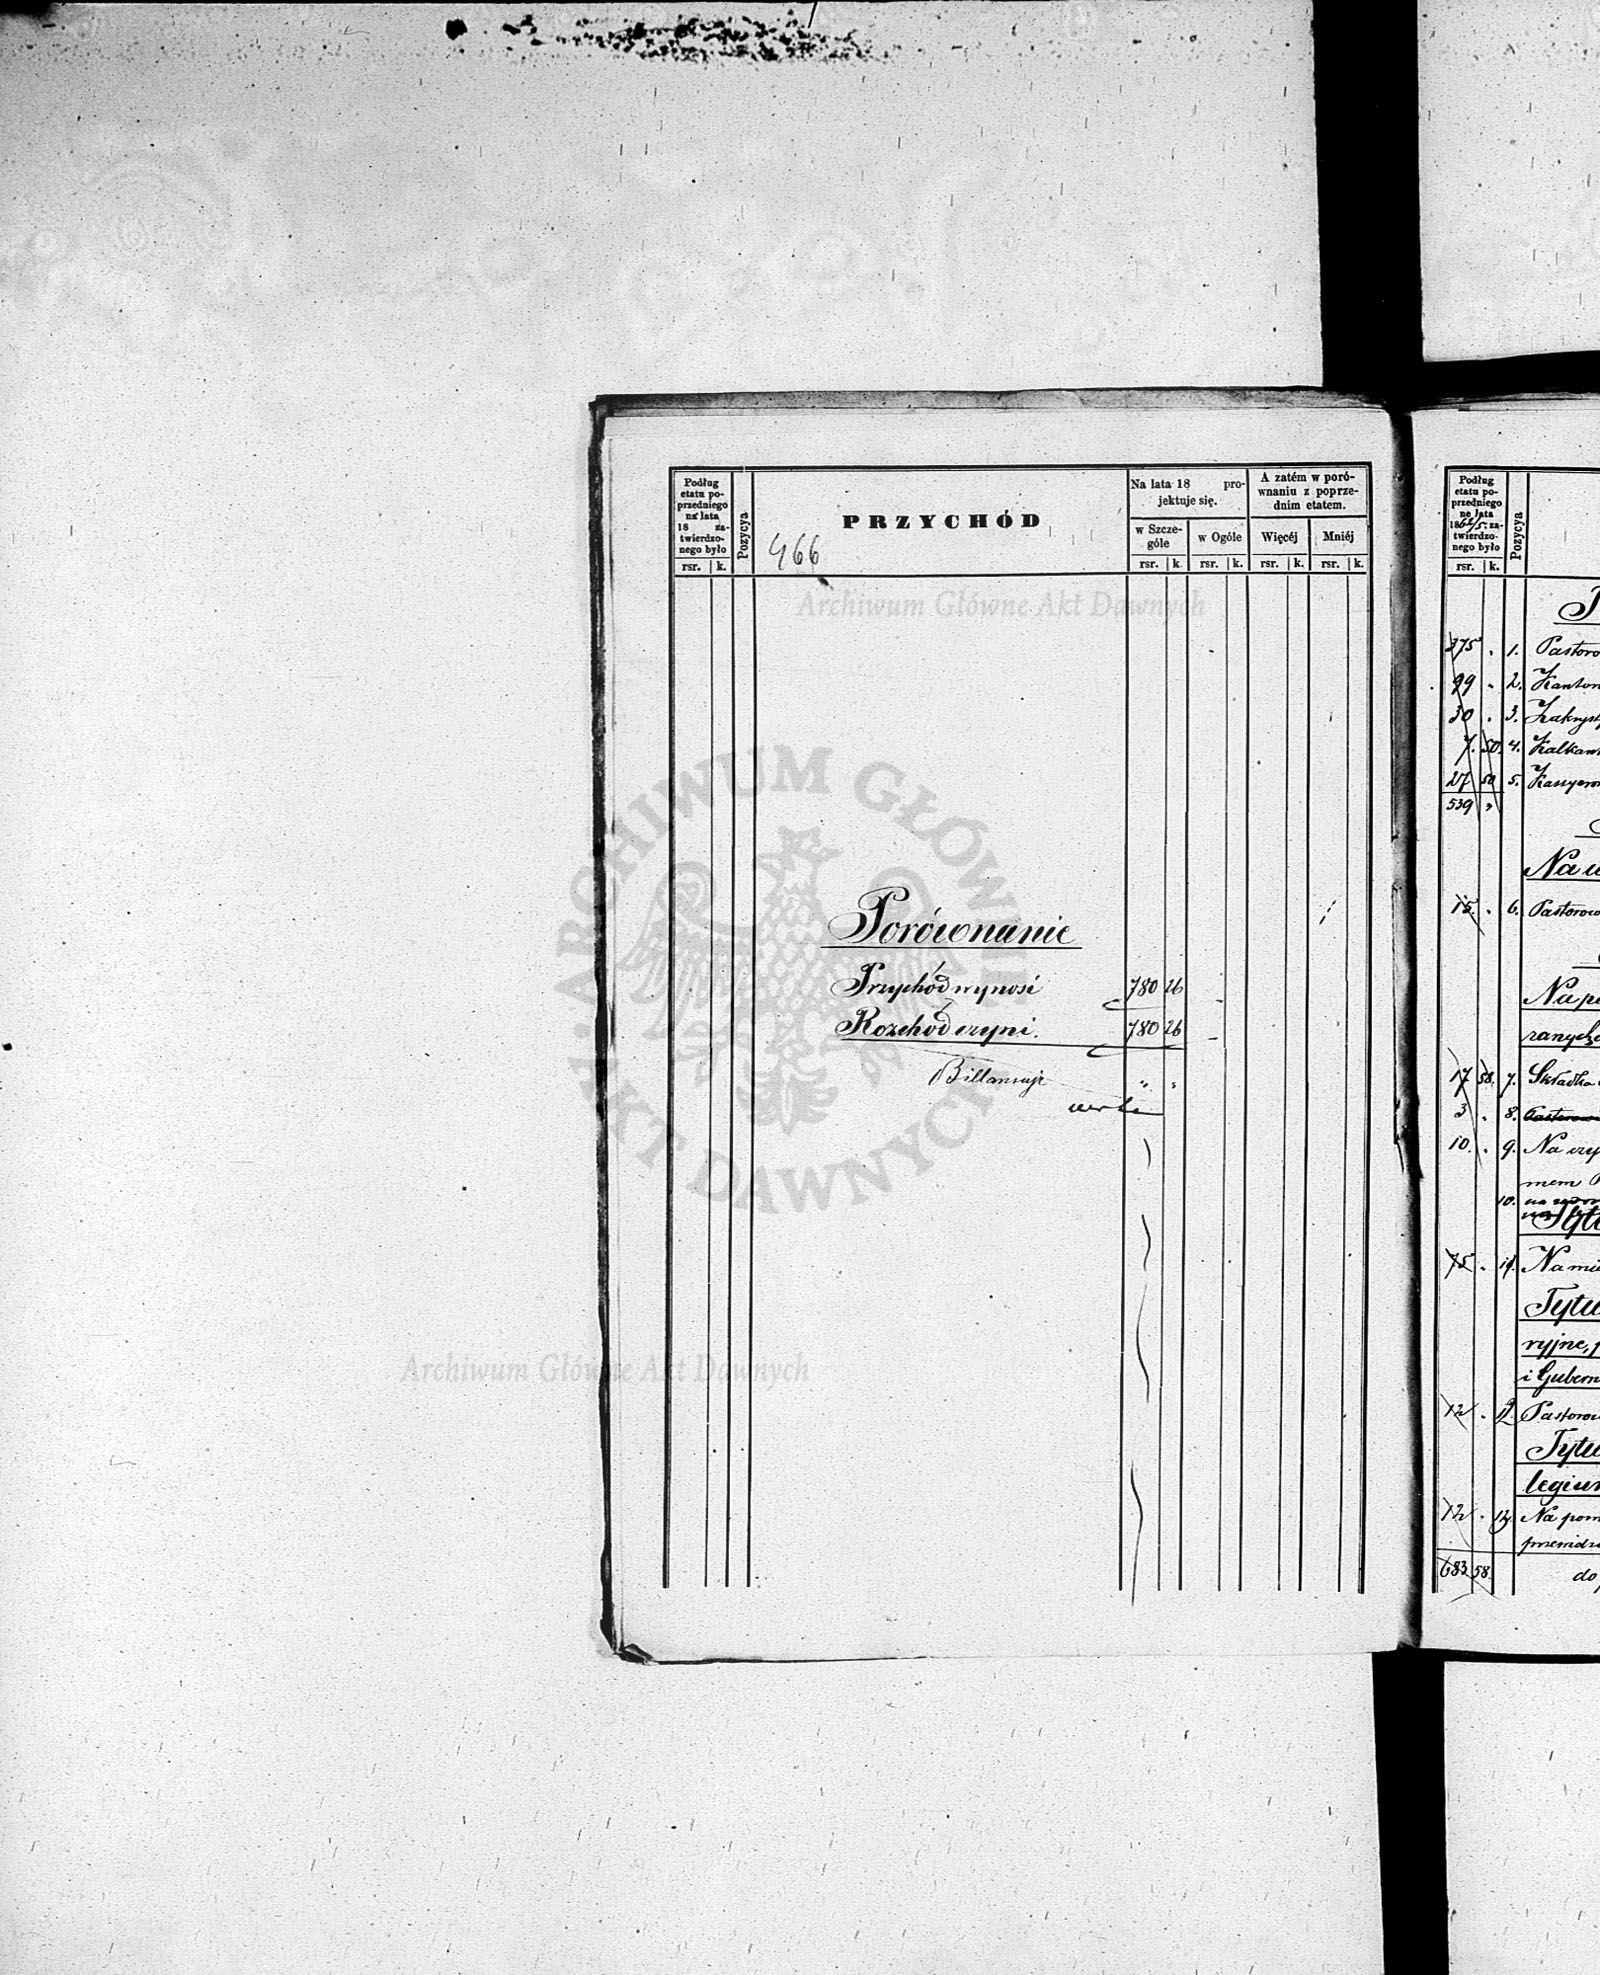 Podług
etatu po-
przedniego
na lata
18 za-
twierdzo-
nego było
rsr. k.
Pozycya
PRZYCHÓD
466
Na lata 18 pro-
jektuje się.
w Szcze-
góle
w Ogóle
rsr. k. rsr. k.
A zatém w poró-
wnaniu z poprze-
dnim etatem.
Więcéj Mniéj
rsr. k. rsr. k.
Archiwum Główne Akt Dawnych
ARCHIWUM GŁÓWNE AKT DAWNYCH
Porównanie
Przychód wynosi 780 26
Rozchód czyni. 780 26
Billansuje " "
Archiwum Główne Akt Dawnych
Podług
etatu po-
przedniego
na lata
za-
twierdzo-
nego było
rsr. k.
Pozycya
375 " 1. Pastoro
99 " 2. Kanton
30 " 3. Zakryst
7. 50. 4. Kalkan
27 50 5. Kassyero
539 "
Na u
15. " 6. Pastorow
Na p
ranych
17 58. 7. Składka
3 " 8. Pastorow
10. " 9. Na czy
mem
10.
Tytu
75 " 11. Na mie
Tytu
ryjne, p
i Gubern
12 " 12. Pastorow
Tytu
legium
12 " 13. Na pom
przewidz
683 58. do